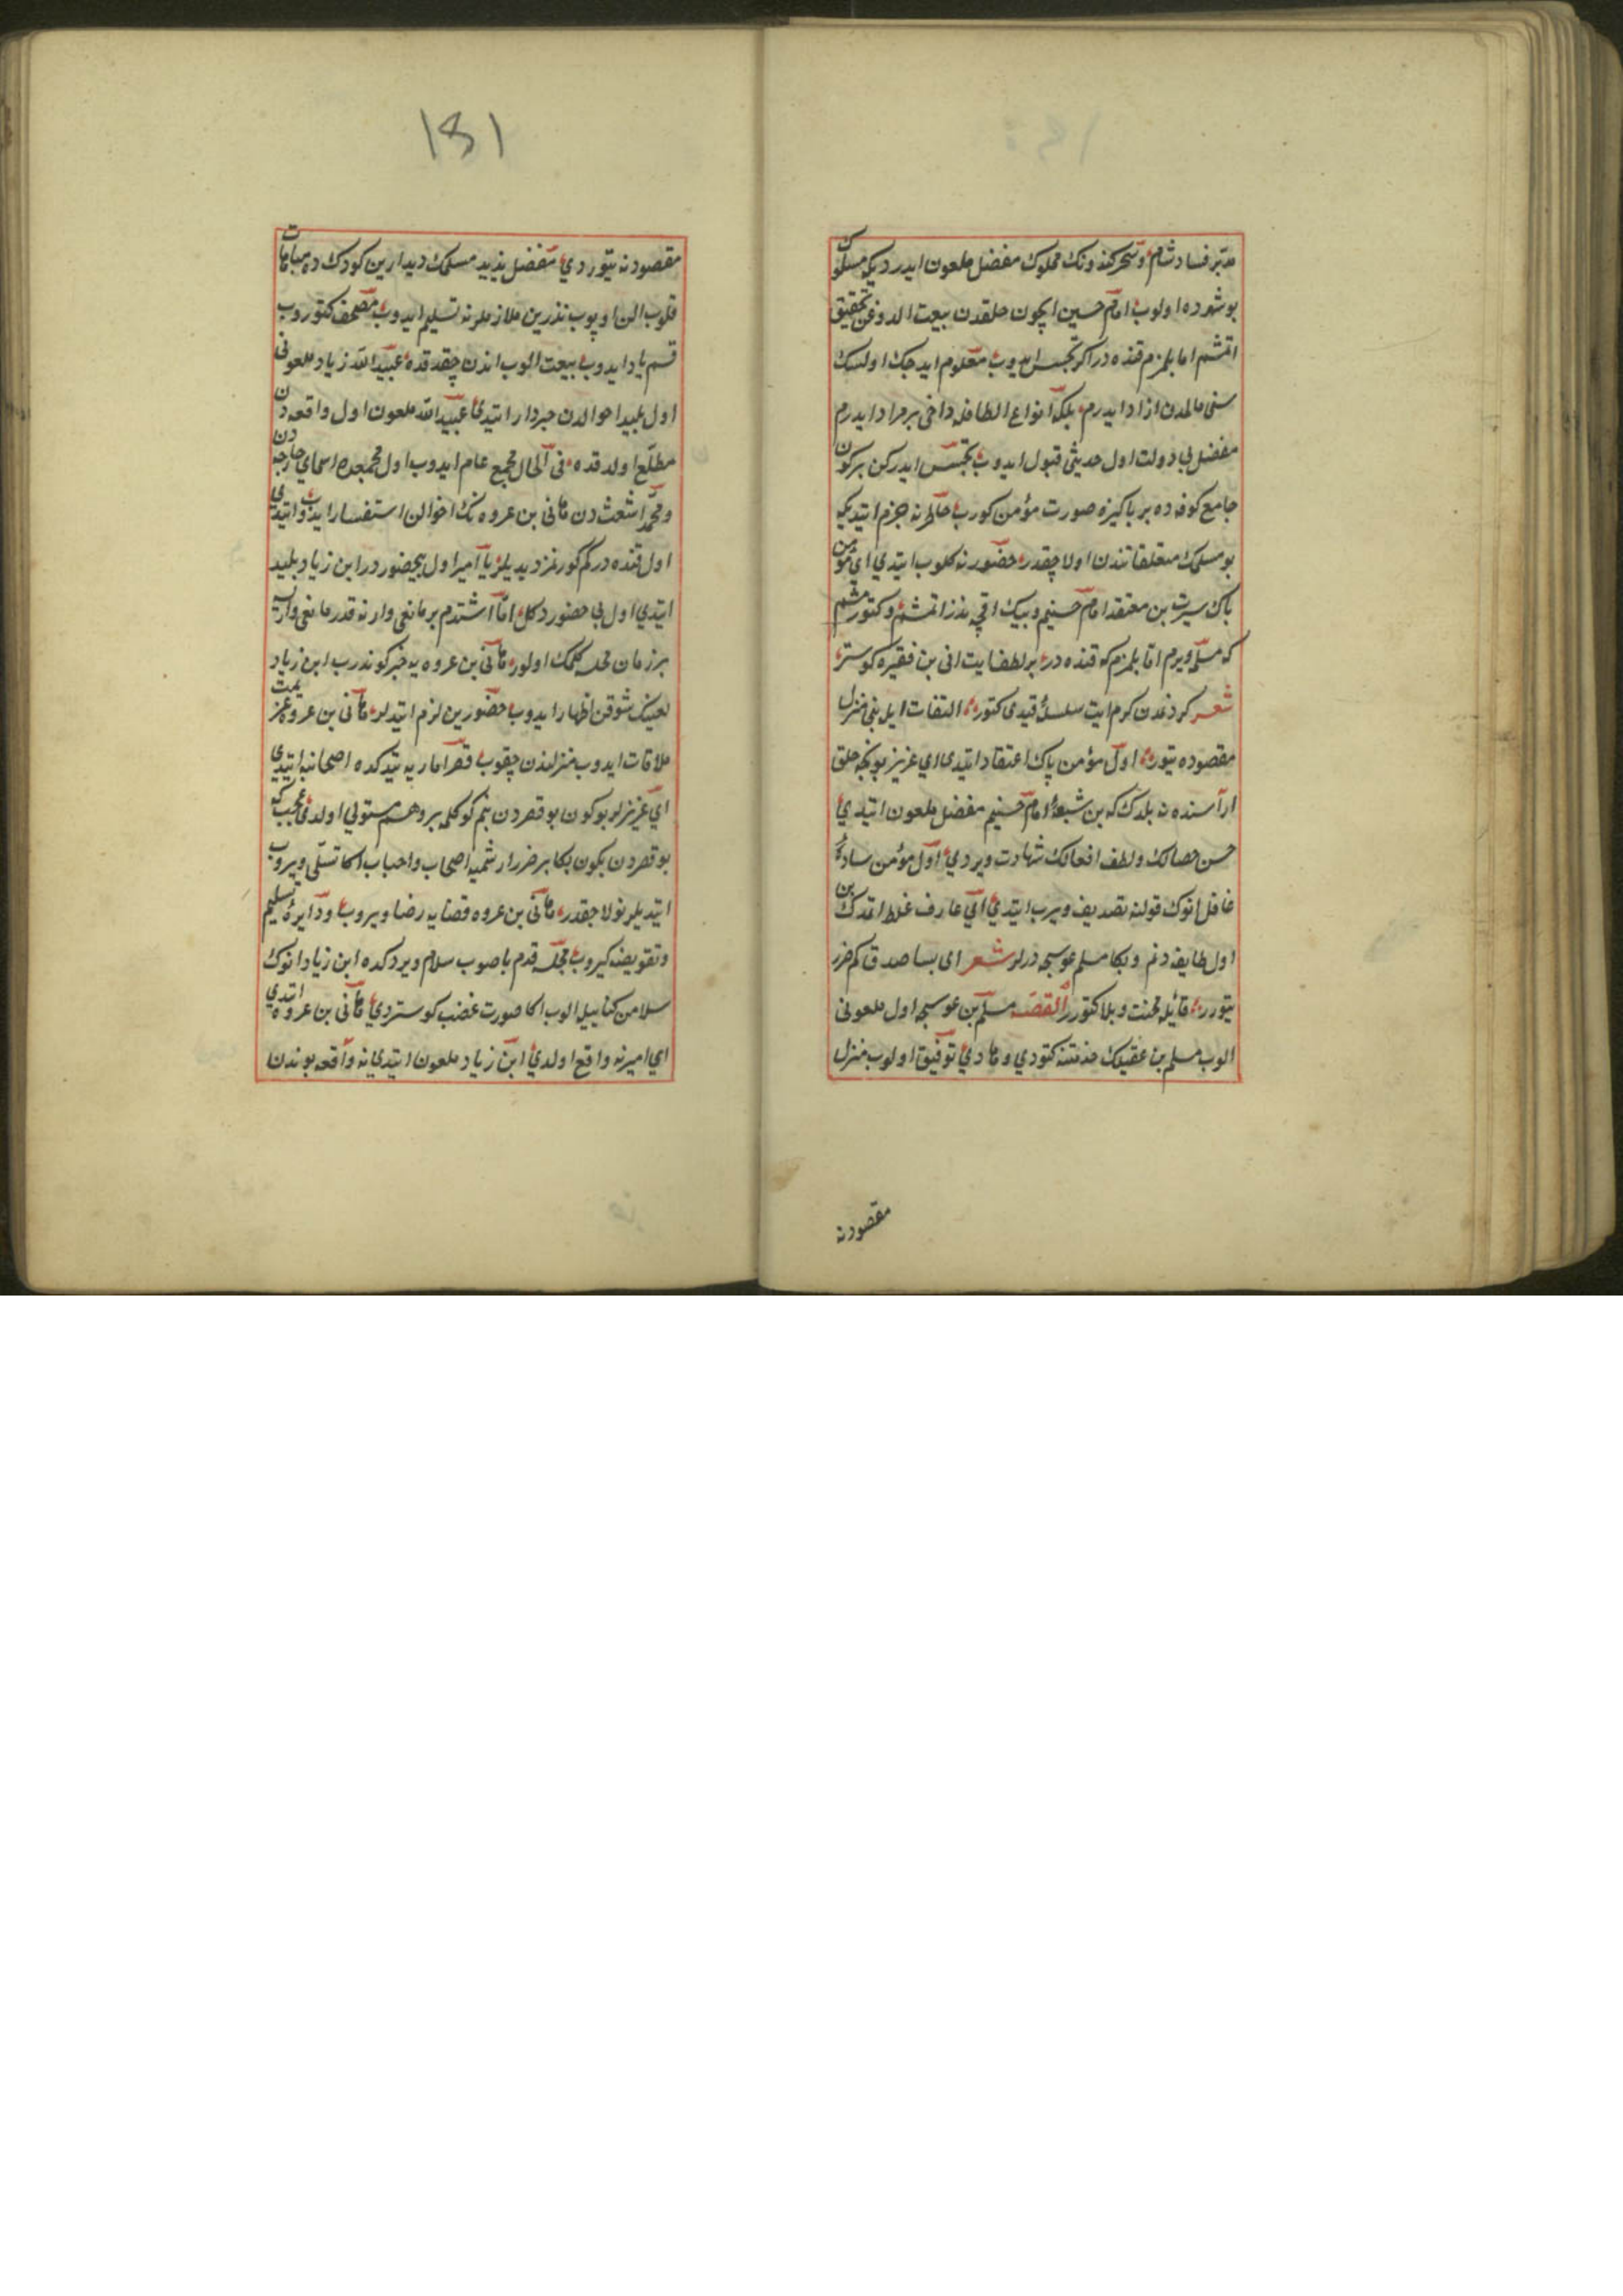 مدبر فساد شام و سحركند ونك مملوك مفضل ملعون ايدر ديكه مسلوك
بو شهرده اولوب امام حسين ايچون خلقدن بيعت الدوغن تحقيق
اتمشم اما بلمزم قنده در اكر تجسس ايدوب معلوم ايدجك اولسك
سنى مالمدن ازاد ايدرم بلكه انواع الطافله داخى برمراد ايدرم
مفضل بى دولت اول حديثى قبول ايدوب تجسس ايدركن بركون
جامع كوفه ده بر پاكيزه صورت مؤمن كورب خاطرنه جزم اتيديكه
بو مسلمك متعلقاتندن اولاجقدر حضورنه كلوب ايتدي اي مؤمن
پاك سيرت بن معتقد امام حسينم وبيك اقچه نذر اتمشم وكتورمشم
كه مسلمه ويرم اما بلمزم كه قنده در بر لطف ايت انى بن فقيره كوستر
شعر كرد غمدن كرم ايت سلسله قيدى كتور التفات ايله بنى منزل
مقصوده يتور اول مؤمن پاك اعتقاد ايتدى اي عزيز بونجه خلق
اراسنده نه بلدك كه بن شيعه امام حسينم مفضل ملعون ايتدي
حسن خصالك ولطف افعالك شهادت ويردي اول مؤمن ساده
غافل انوك قولنه تصديق ويرب ايتدي اي عارف غلط اتمدك بن
اول طايفه دنم وبكا مسلم عوسجه درلر شعر اى بسا صدق كم ضرر
يتورر قائله محنت وبلا كتورر القصه مسلم بن عوسجه اول ملعونى
الوب مسلم بن عقيلك خدمتنه كتوردي وهادي توفيق اولوب منزل
مقصودنه
مقصودنه يتوردي مفضل پذيد مسلمك ديدارين كوردكده مباهات
قلوب الن اوپوب نذرين ملازملرنه تسليم ايدوب مصحف كتوروب
قسم ياد ايدوب بيعت الوب اندن چقدقده عبيدالله زياد ملعونى
اول پليد احوالدن خبردار ايتدي عبيدالله ملعون اول واقعه دن
مطلع اولدقده فى الحال مجمع عام ايدوب اول مجمعده اسماي خارجه دن
ومحمد اشعث دن هانى بن عروه نك احوالن استفسار ايدوب ايتدي
اول قنده در كم كورنمز ديديلر يا امير اول بيحضوردر ابن زياد پليد
ايتدي اول بى حضور دكل اما اشتدم بر مانعى وار نه قدر مانعى وارسه
بر زمان محله كلمك اولور هانى بن عروه يه خبر كوندرب ابن زياد
لعينك شوقن اظهار ايدوب حضورين لزم ايتديلر هانى بن عروه عزيمت
ملاقات ايدوب منزلندن چقوب قصر اماريه يتدكده اصحابنه ايتدي
اي عزيزلر بو كون بو قصردن بنم كوكلمه بر وهم مستولي اولدى عجب كه
بو قصردن بكون بكا بر ضرر ارشميه اصحاب واحباب اكا تسلى ويروب
ايتديلر نولاجقدر هانى بن عروه قضايه رضا ويروب ودايره تسليم
وتفويضه كيروب محله قدم باصوب سلام ويردكده ابن زياد انوك
سلامن كنايه ايله الوب اكا صورت غضب كوستردي هانى بن عروه ايتدي
اي امير نه واقع اولدي ابن زياد ملعون ايتدى يا نه واقعه بوندن